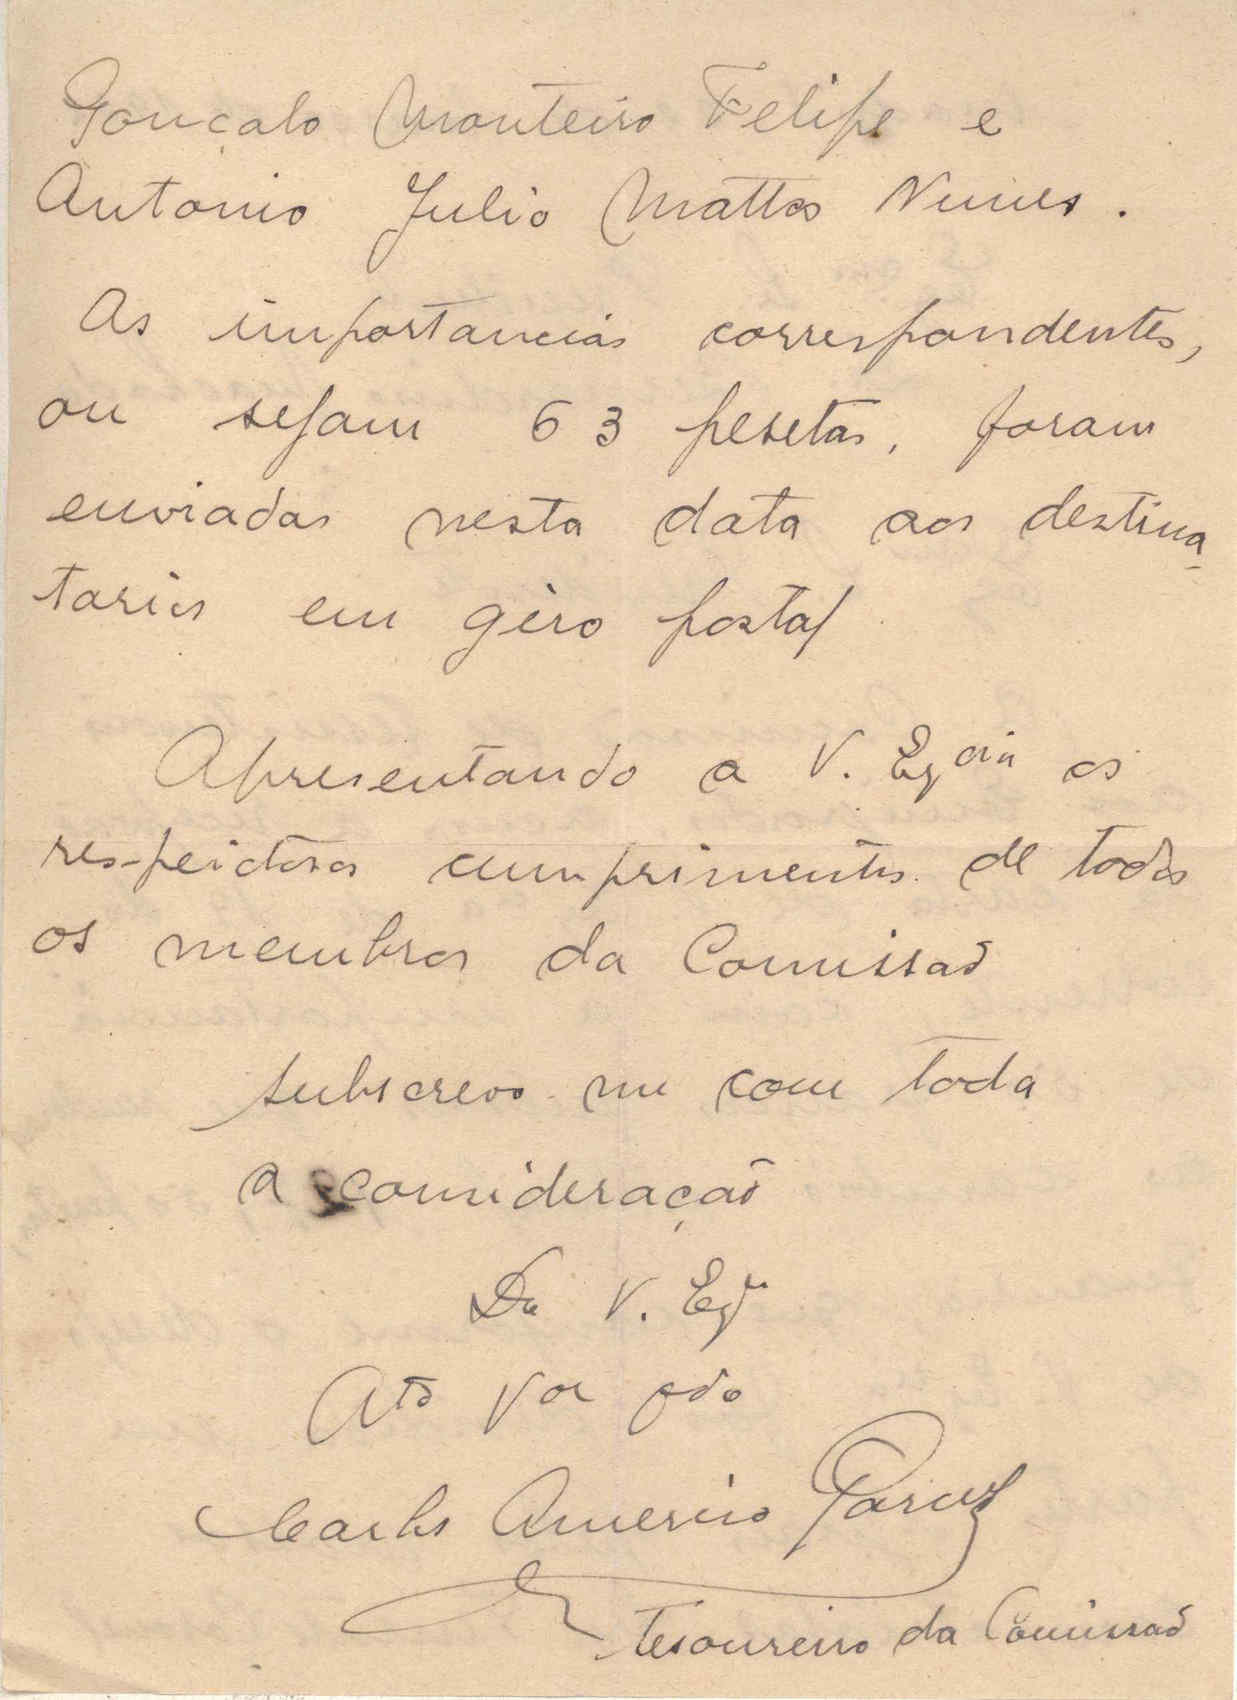 Gonçalo Monteiro Felipe e
Antonio Julio Mattos Nunes.
As importancias correspondentes,
ou sejam 63 pesetas, foram
enviadas nesta data aos destina-
tarios em giro postal
Apresentando a V. Exª os
respeitosos cumprimentos de todos
os membros da Comissaõ
subscrevo-me com toda
a consideraçaõ
De V. Exª
Atº Vor
Carlos Americo
Tesoureiro da Comissaõ